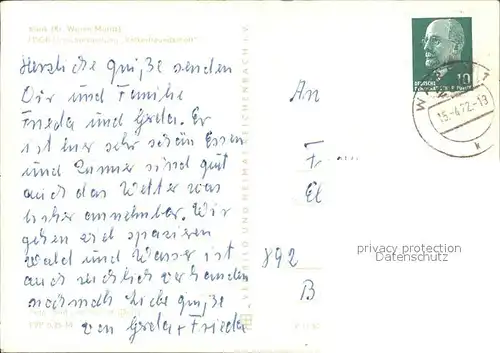 Klink (Kr. Waren-Müritz)
FDGB-Urlaubersiedlung „Völkerfreundschaft"
Herzliche Grüße senden
Dir und Familie
Frieda und Gerda. Er
ist hier sehr schön Essen
und Zimmer sind gut
auch das Wetter war
bisher annehmbar. Wir
gehen viel spazieren
Wald und Wasser ist
auch reichlich vorhanden
nochmals liebe Grüße
von Gerda + Frieda
VERLAG BILD UND HEIMAT REICHENBACH i. V.
An
Fr
El
892
B
DEUTSCHE
10
WAREN 1
15.-4.72.-13
k
privacy protection
Datenschutz